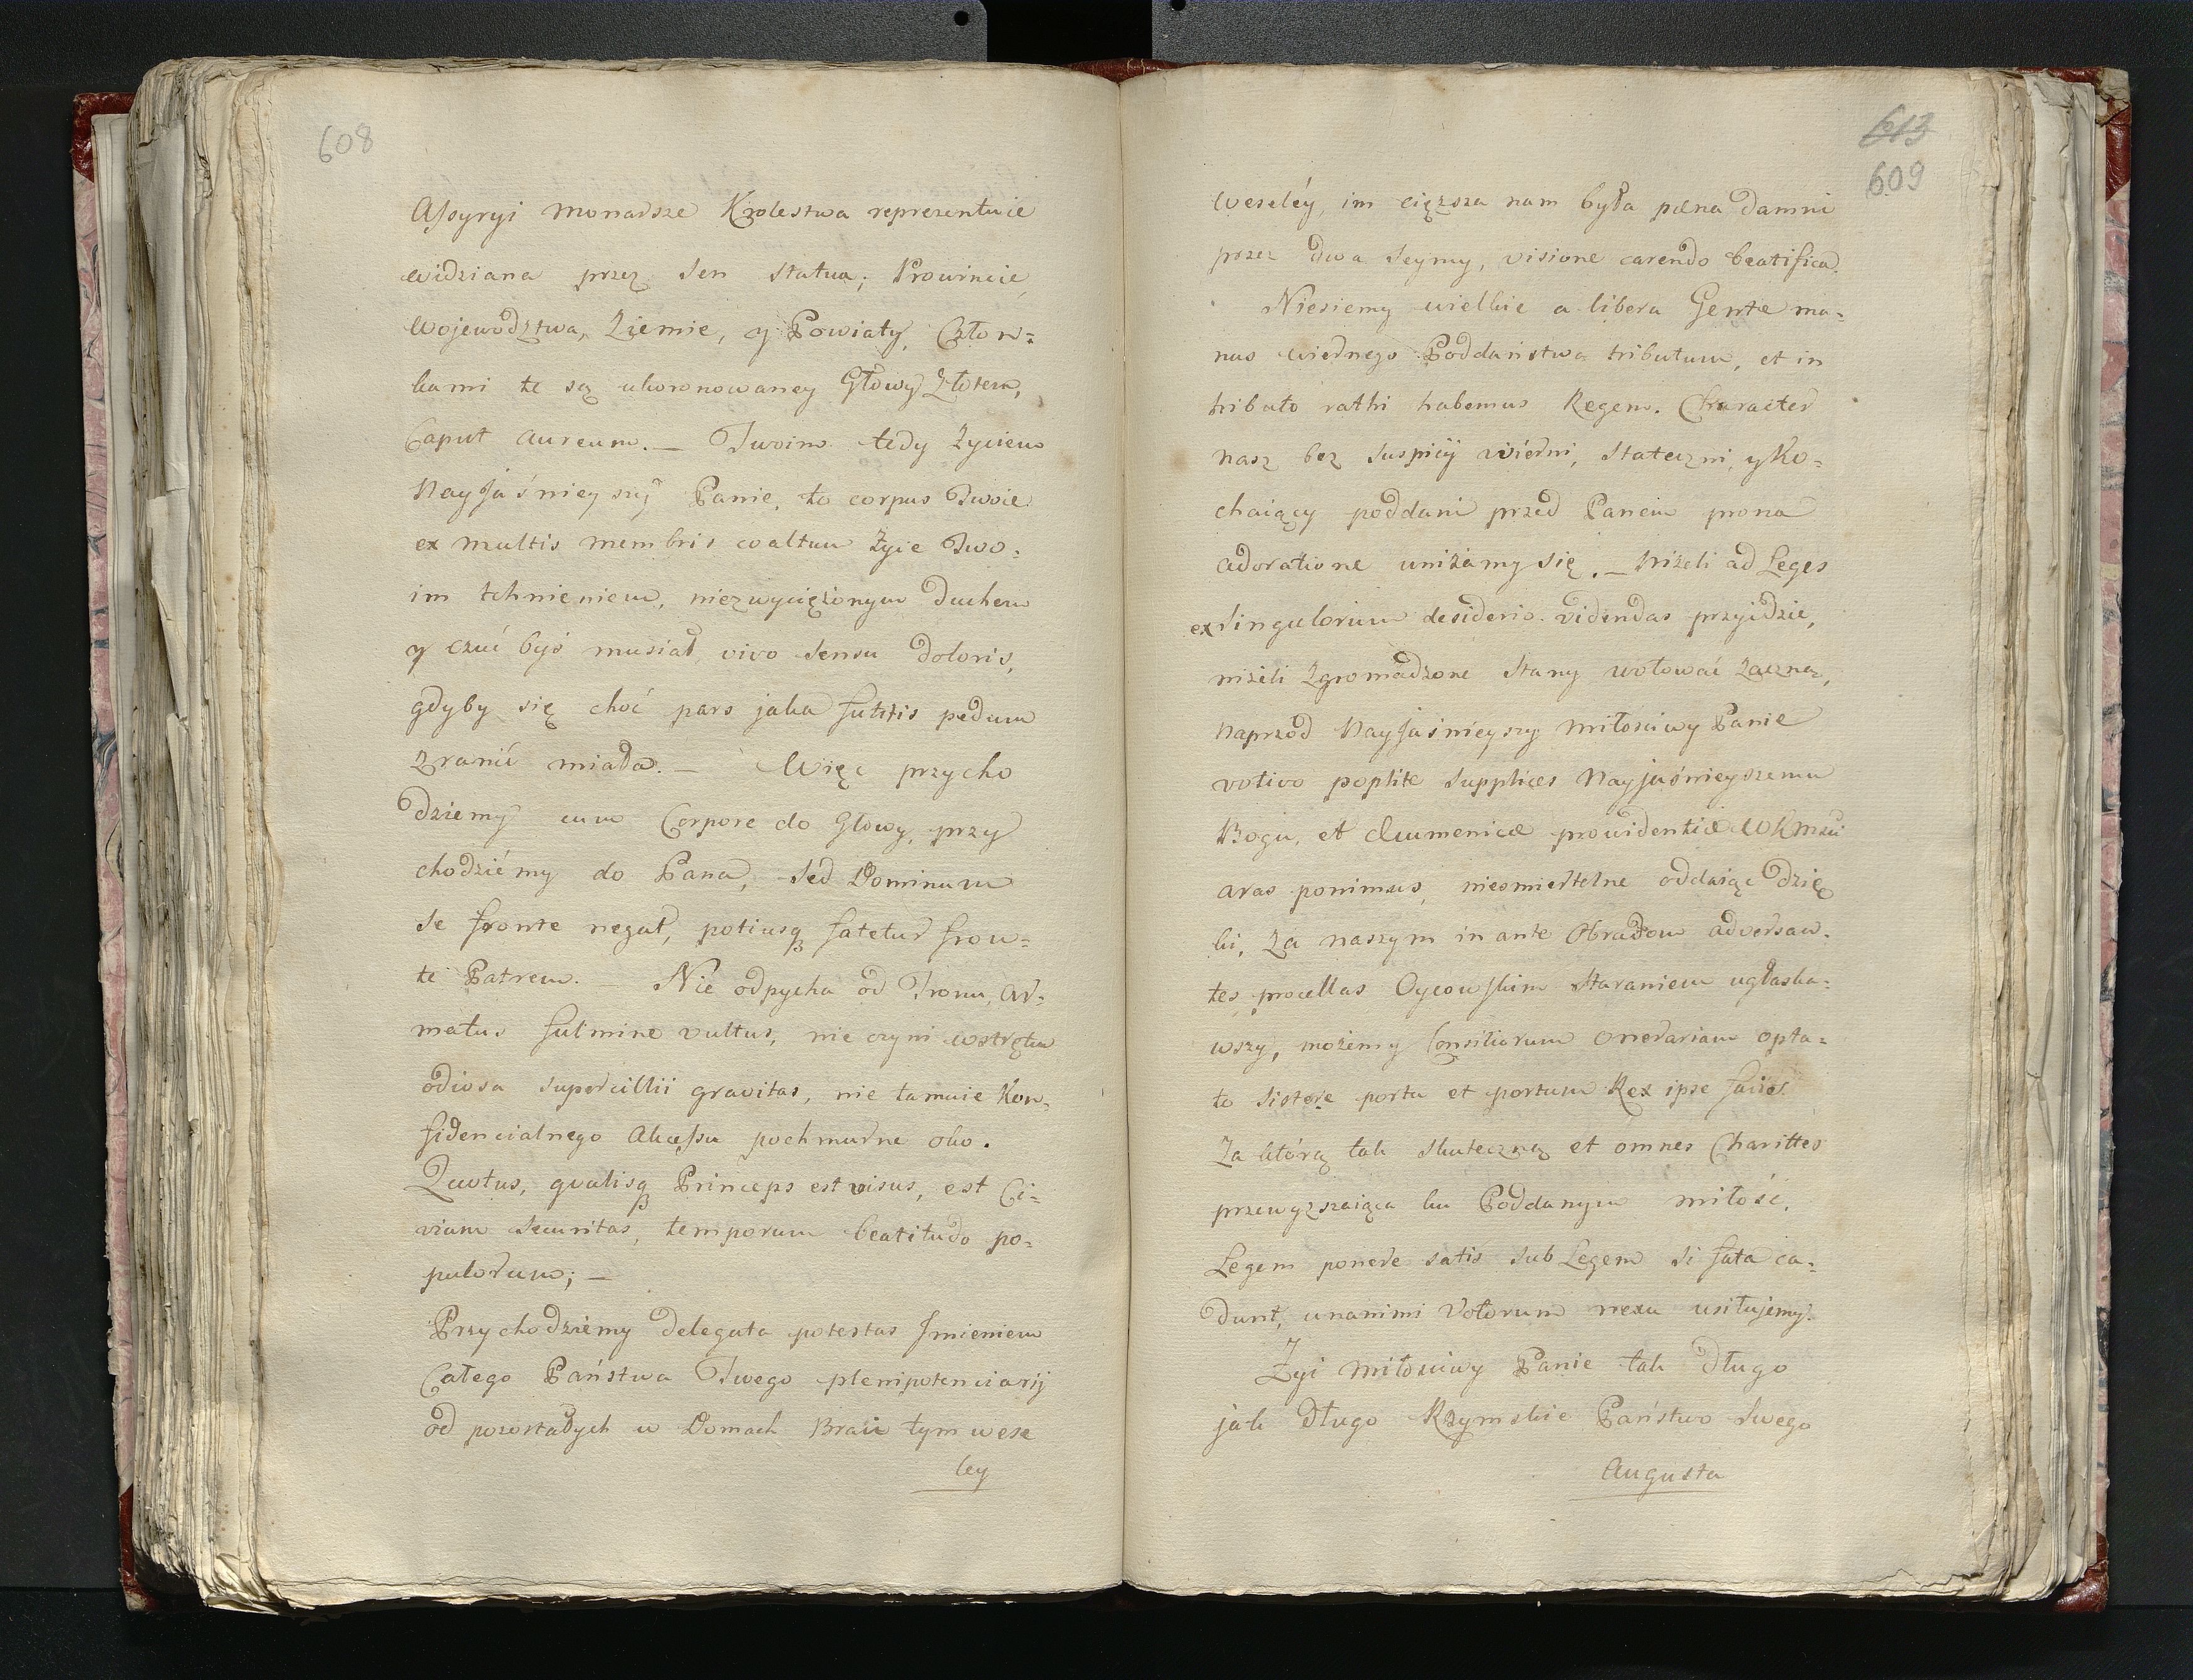 608
Assyryi Monarsze Krolestwa reprezentuie
widziana przez Sen Statua; Prowincie,
Wojewodztwa, Ziemie, y Powiaty, Człon=
kami te są ukoronowaney Głowy Złotem,
Caput aureum. — Twoim tedy Życiem
NayJaśnieyszy Panie, to corpus Twoie
ex multis membris coaltum żyie Two=
im tchnieniem, niezwyciężonym duchem
y czuć byś musiał, vivo sensu doloris,
gdyby się choć pars jaka futilis pedum
zranić miała. — Więc przycho
dziemy cum Corpore do Głowy, przy
chodziémy do Pana, sed Dominum
se fronte negat, potiusq fatetur fron=
te Patrem. — Nie odpycha od Tronu, ar=
matus fulmine vultus, nie czyni wstrętu
odiosa supercillii gravitas, nie tamuie Kon=
fidencialnego Akcessu pochmurne oko.
Quotus, qualisq Princeps est visus, est Ci=
vium securitas, temporum beatitudo po=
pulorum; —
Przychodziémy delegata potestas Imieniem
Całego Państwa Twego plenipotenciarij
od pozostałych w Domach Braci tym wese
ley
613
609
weseléy, im cięższa nam była pæna damni
przez dwa Seymy, visione carendo beatifica.
Niesiemy wielkie a libera Gente ma=
nus wiernego Poddaństwa tributum, et in
tributo rathi habemus Regem. Character
nasz bez suspicÿ wierni, stateczni, y Ko=
chaiący poddani przed Panem prona
adoratione uniżamy się. — Niżeli ad Leges
ex singulorum desiderio videndas przyidzie,
niżeli zgromadzone Stany wotować zaczną,
naprzod NayJaśnieyszy Miłosciwy Panie
votivo poplite supplices Nayjaśnieyszemu
Bogu, et Œcumenicæ prowidentiæ WKMsci
aras ponimus, nieśmiertelne oddaiąc dzię
ki, za naszym in ante Obradom adversan=
tes procellas Oycowskim staraniem ugłaska=
wszy, możemy Consiliorum onerariam opta=
to sistere portu et portum Rex ipse facies.
Za którą tak skuteczną et omnes Charittes
przewyzszaiąca ku Poddanym miłość,
Legem ponere satis sub Legem si fata ca=
dunt, unanimi Votorum nexu usiłujemy.
Żyi Miłosciwy Panie tak długo
jak długo Rzymskie Państwo swego
Augusta